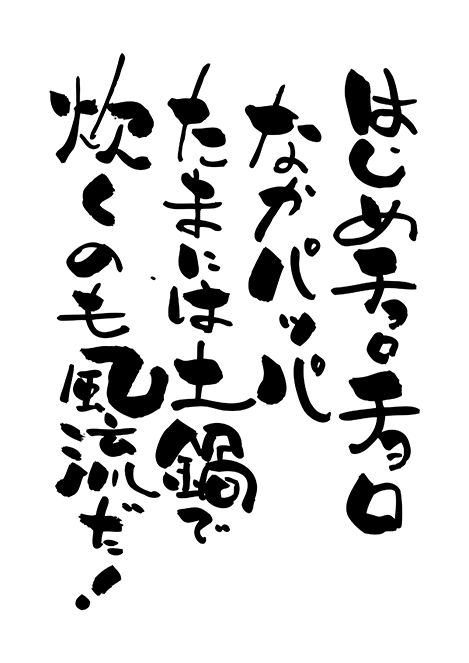 はじめチョロチョロ
なかパッパ
たまには土鍋で
炊くのも風流だ!